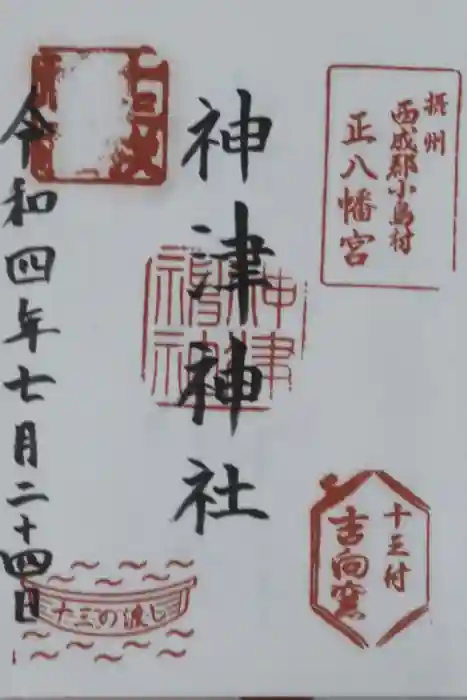 摂州
西成郡小島村
正八幡宮
神津神社
神津
神社
十三付
吉向窯
令和四年七月二十四日
十三の渡し